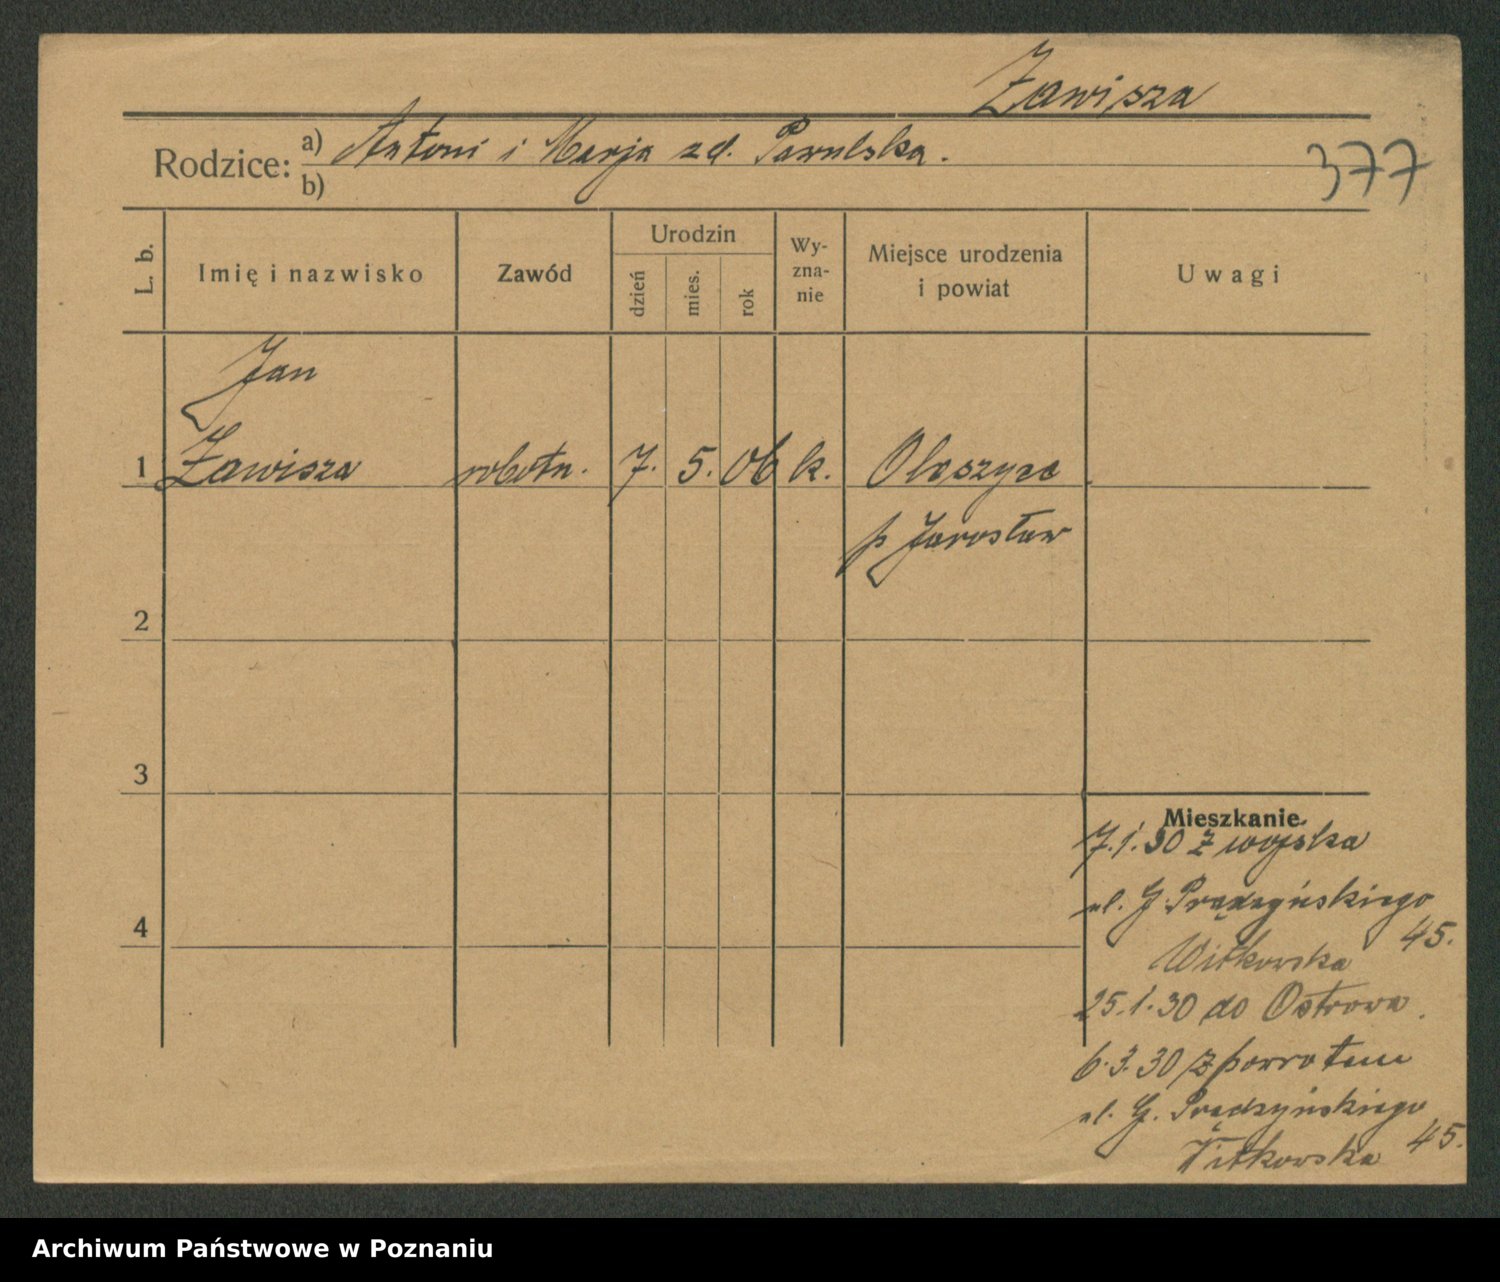 Zawisza
Rodzice: a) Antoni i Marja zd. Pawulska.
b)
377
L. b.
Imię i nazwisko
Zawód
Urodzin
dzień
mies.
rok
Wy-
zna-
nie
Miejsce urodzenia
i powiat
Uwagi
Jan
1 Zawisza robotn. 7. 5. 06 k. Oleszyce
p Jarosław
2
3
4
Mieszkanie
7.1.30 z wojska
ul. G. Prądzyńskiego
45.
Witkowska
25.1.30 do Ostrowa.
6.3.30 z powrotem
ul. G. Prądzyńskiego
45.
Witkowska
Archiwum Państwowe w Poznaniu